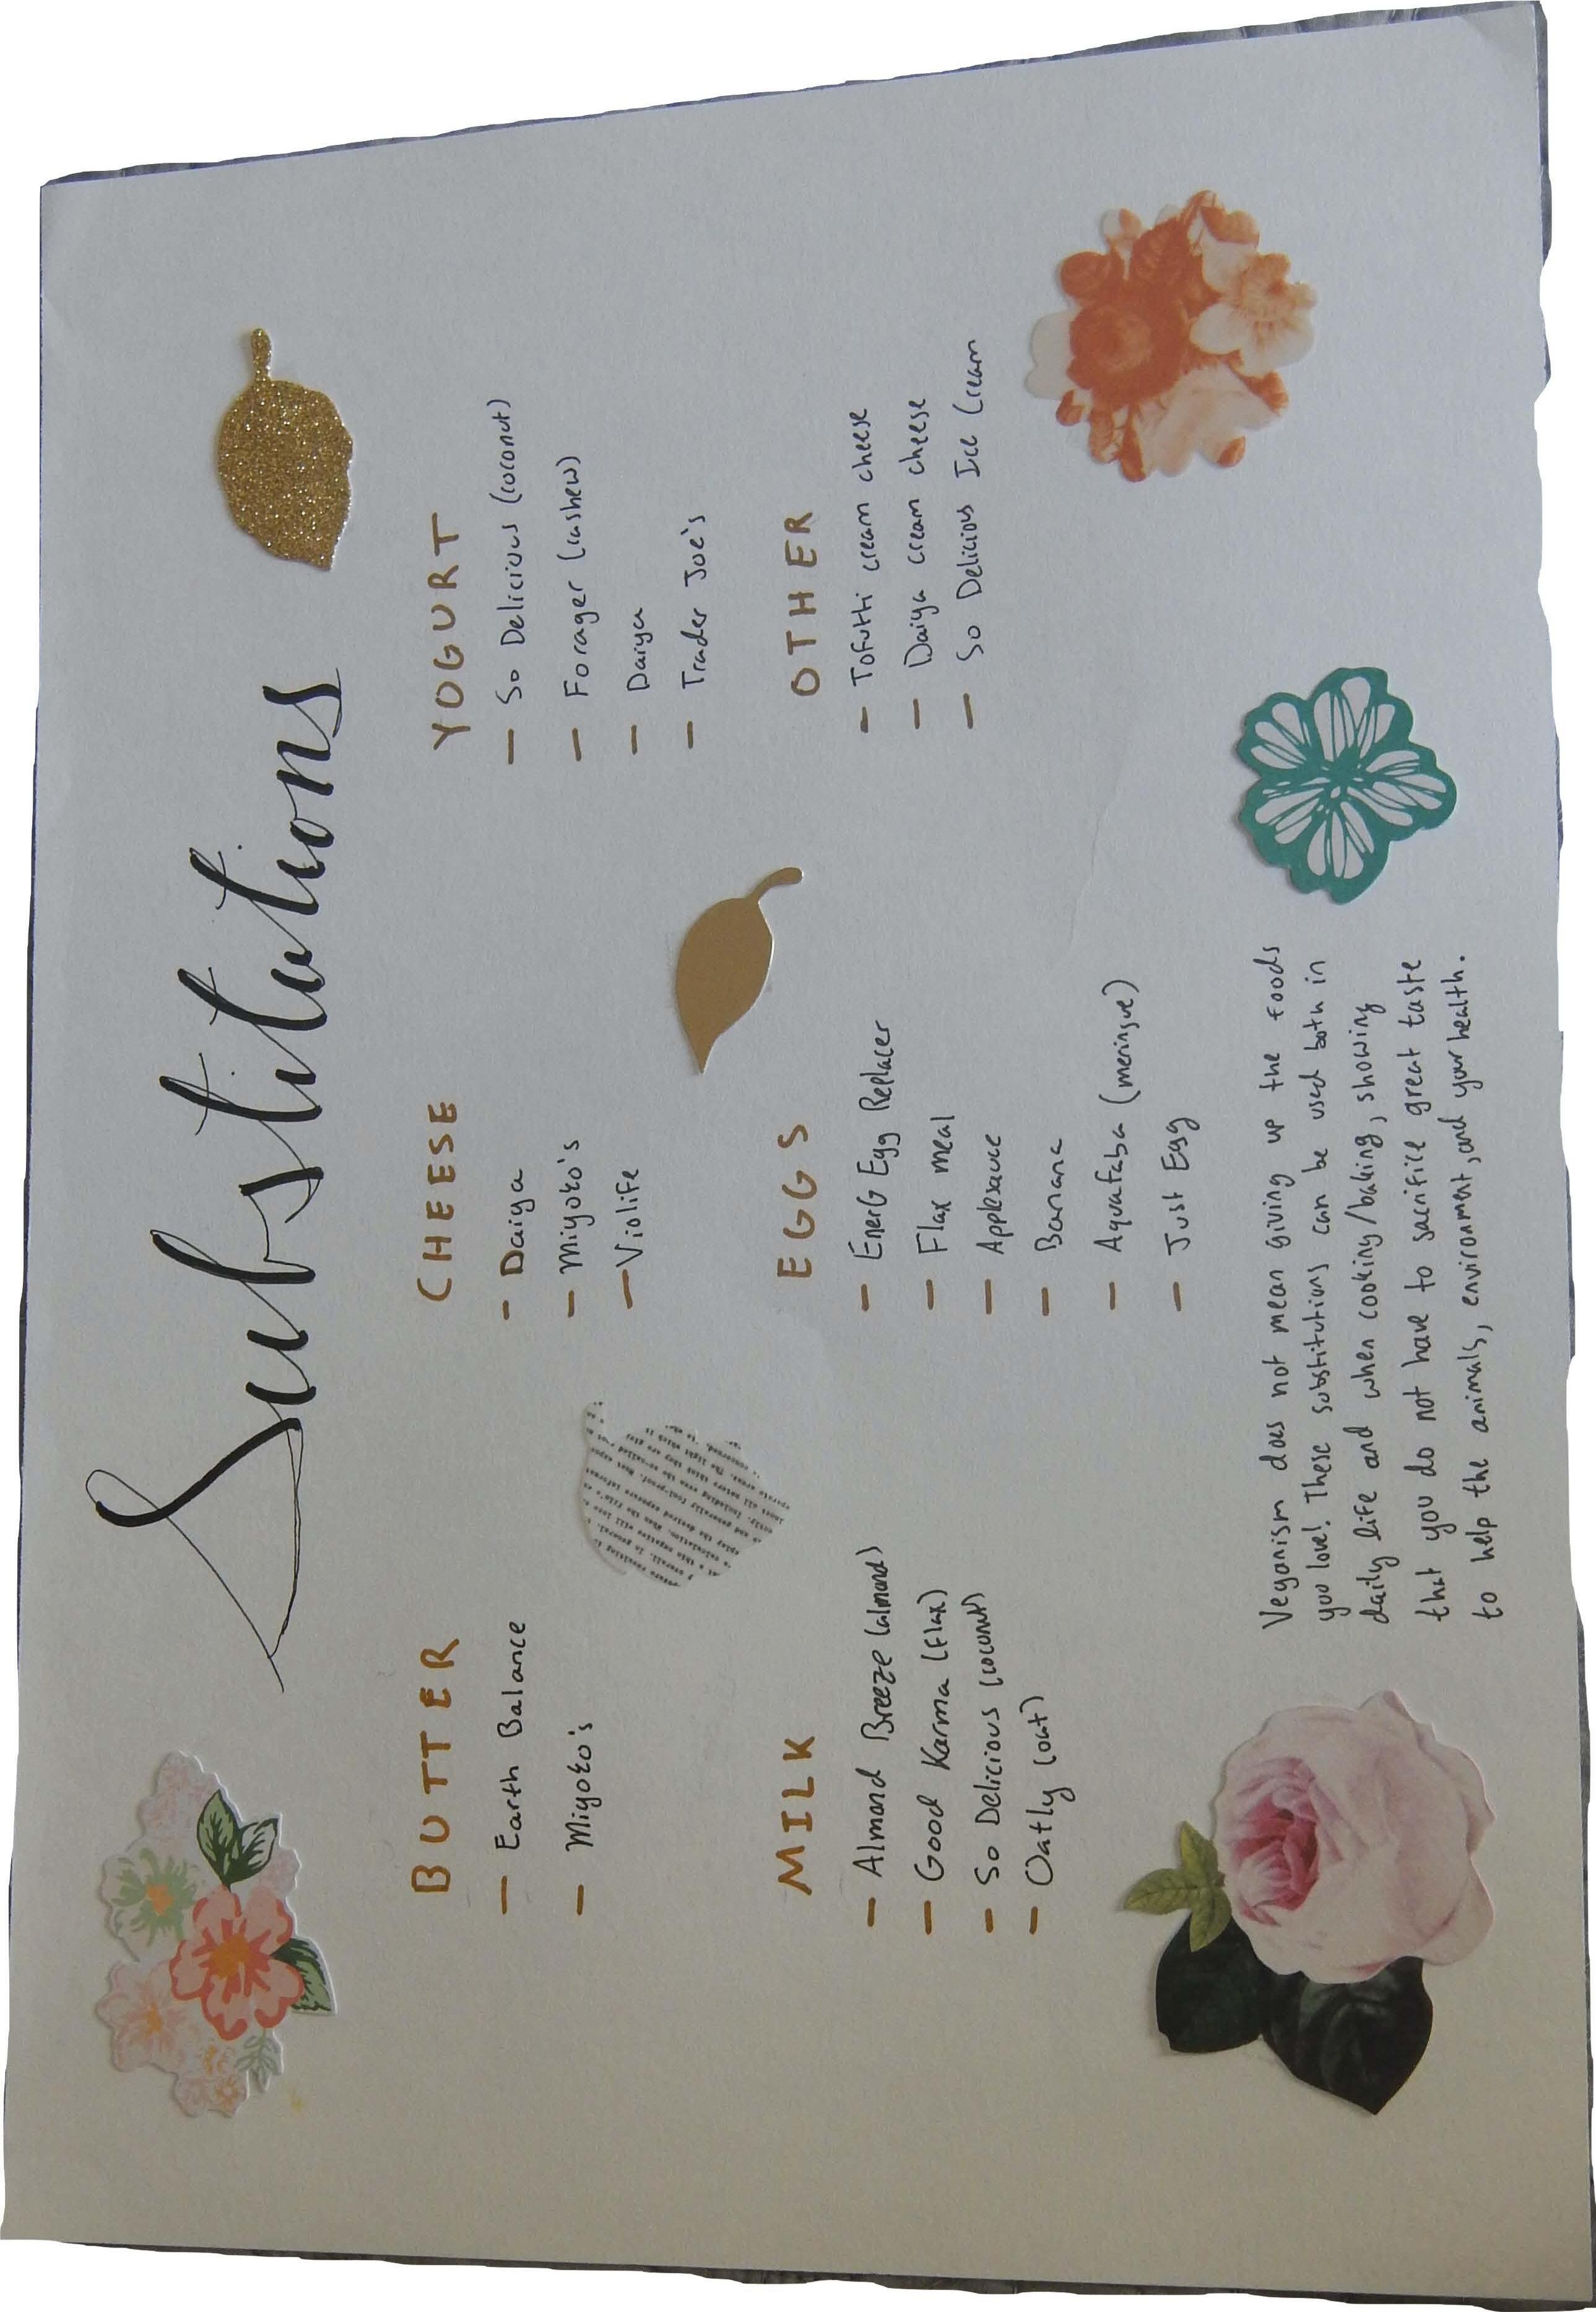 Substitutions
BUTTER
- Earth Balance
- Miyoko's
CHEESE
- Daiya
- Miyoko's
- Violife
YOGURT
- So Delicious (coconut)
- Forager (cashew)
- Daiya
- Trader Joe's
MILK
- Almond Breeze (almond)
- Good Karma (flax)
- So Delicious (coconut)
- Oatly (oat)
EGGS
- EnerG Egg Replacer
- Flax meal
- Applesauce
- Banana
- Aquafaba (meringue)
- Just Egg
OTHER
- Tofutti cream cheese
- Daiya cream cheese
- So Delicious Ice Cream
Veganism does not mean giving up the foods
you love! These substitutions can be used both in
daily life and when cooking/baking, showing
that you do not have to sacrifice great taste
to help the animals, environment, and your health.